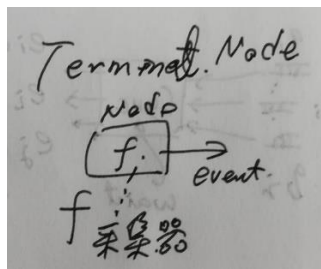 Termmal.Node
Node
f.
event.
f 采集器